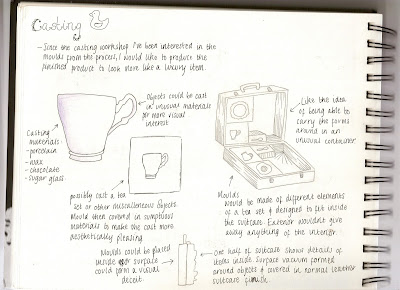 Casting
- Since the casting workshop I've been interested in the
moulds from the process, I would like to produce the
finished product to look more like a luxury item.
Objects could be cast
in unusual materials
for more visual
interest
Like the idea
of being able to
carry the forms
around in an
unusual container.
Casting
materials-
- porcelain
- wax
- chocolate
- sugar glass
possibly cast a tea
set or other miscellaneous objects.
Mould then covered in sumptuous
materials to make the cast more
aesthetically pleasing
Moulds
would be made of different elements
of a tea set & designed to fit inside
the suitcase. Exterior wouldn't give
away anything of the interior.
Moulds could be placed
inside surface
could form a visual
deceit.
One half of suitcase shows details of
items inside. Surface vacuum formed
around objects & covered in normal leather
suitcase finish.